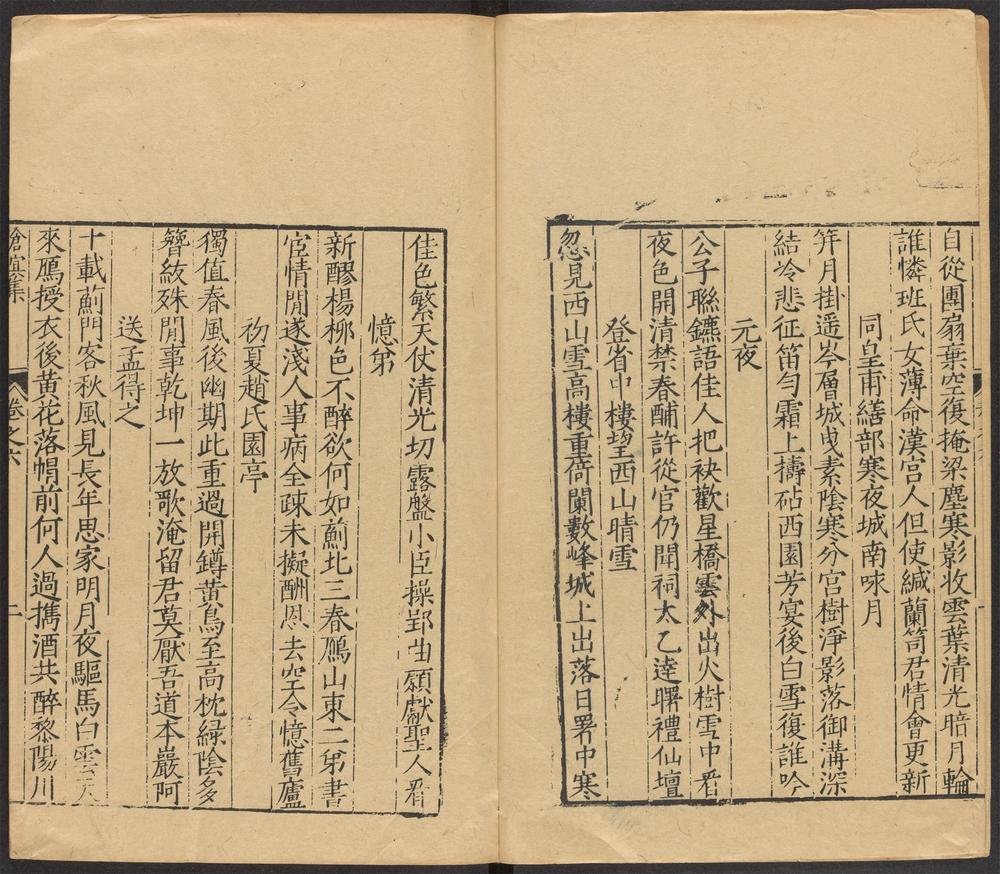 自從團扇棄空復掩梁塵寒影收雲葉清光暗月輪
誰憐班氏女薄命漢宮人但使緘蘭笥君情會更新
同皇甫繕部寒夜城南咏月
筓月掛遥岑層城曳素陰寒分宮樹淨影落御溝深
結冷悲征笛勻霜上擣砧西園芳宴後白雪復誰吟
元夜
公子聯鑣語佳人把袂歡星橋雲外出火樹雪中看
夜色開清禁春酺許從官仍聞祠太乙達曙禮仙壇
登省中樓望西山晴雪
忽見西山雪高樓重倚闌數峰城上出落日署中寒
佳色繁天仗清光切露盤小臣操郢曲願獻聖人看
憶弟
新醪楊柳色不醉欲何如薊北三春鴈山東二弟書
宦情閒遂淺人事病全疎未擬酬恩去空令憶舊廬
初夏趙氏園亭
獨值春風後幽期此重過開罇黃鳥至高枕緑陰多
簪紱殊閒事乾坤一放歌淹留君莫厭吾道本巖阿
送孟得之
十載薊門客秋風見長年思家明月夜驅馬白雲天
來鴈授衣後黃花落帽前何人過攜酒共醉黎陽川
滄溟集
卷之六
二